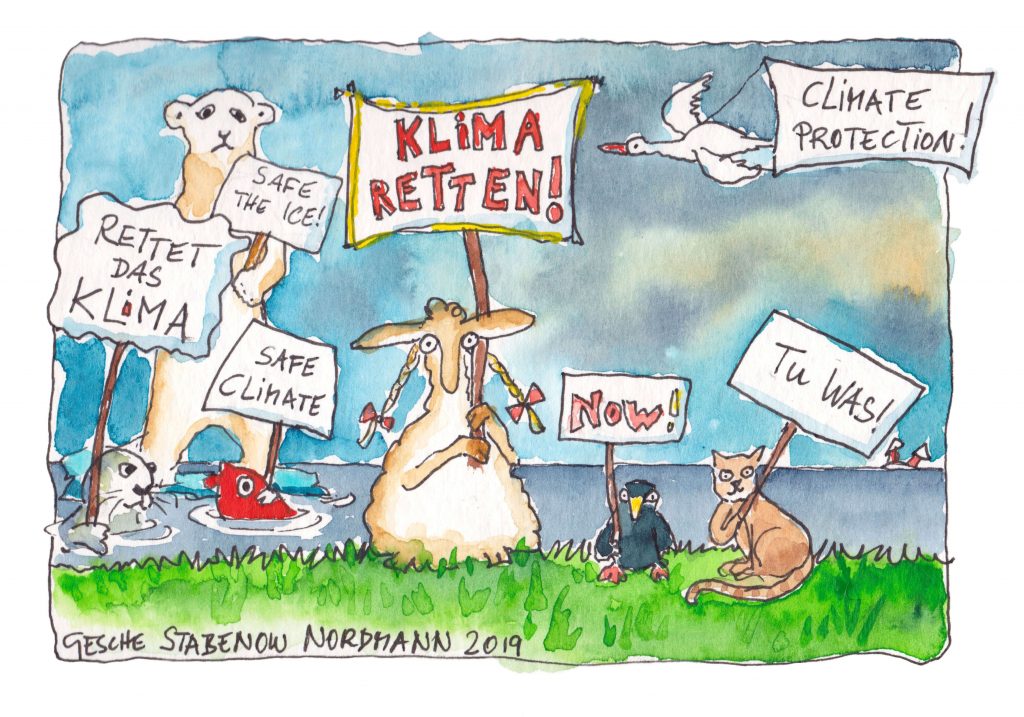 CLIMATE
PROTECTION!
KLiMA
RETTEN!
SAFE
THE ICE!
RETTET
DAS
KLiMA
SAFE
CLIMATE
NOW!
TU WAS!
GESCHE STABENOW NORDMANN 2019